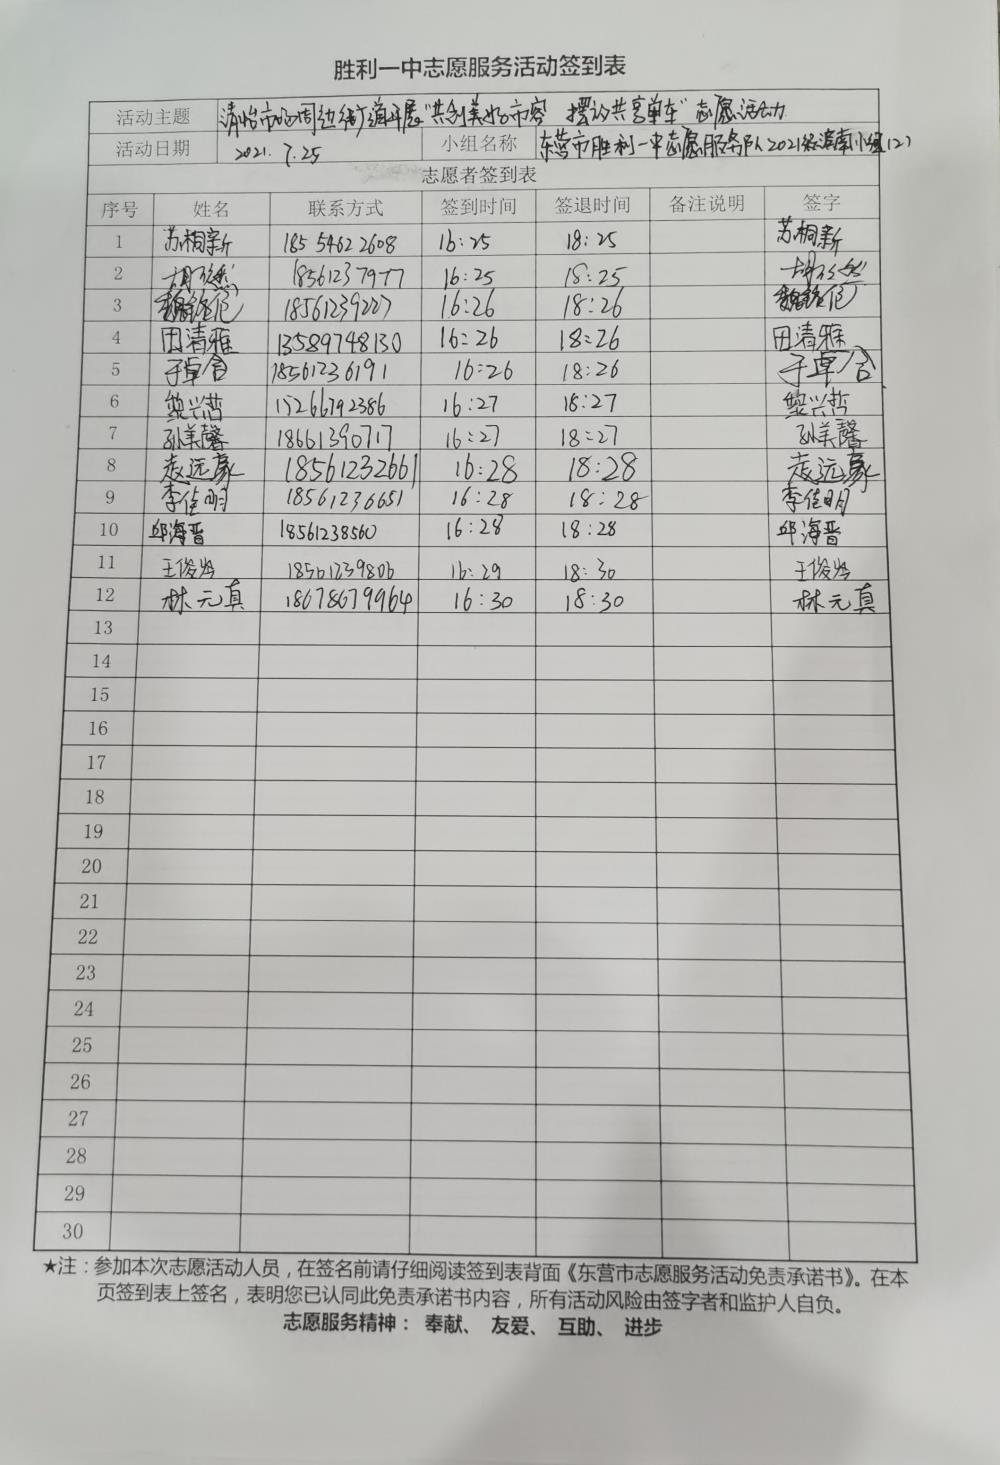 胜利一中志愿服务活动签到表
活动主题 清怡市场周边街道开展“共创美好市容 摆放共享单车”志愿活动
活动日期 2021.7.25 小组名称 东营市胜利一中志愿服务队2021级滨南小组(2)
志愿者签到表
序号 姓名 联系方式 签到时间 签退时间 备注说明 签字
1 苏桐新 185 5462 2608 16:25 18:25 苏桐新
2 18561237977 16:25 18:25
3 18561239227 16:26 18:26
4 田清雅 13589748130 16:26 18:26 田清雅
5 于卓含 18561236191 16:26 18:26 于卓含
6 綦兴哲 15266792386 16:27 18:27 綦兴哲
7 孙美馨 18661390717 16:27 18:27 孙美馨
8 赵远豪 18561232661 16:28 18:28 赵远豪
9 李佳明 18561236651 16:28 18:28 李佳明
10 邱海晋 18561238560 16:28 18:28 邱海晋
11 王俊 18561239806 16:29 18:30 王俊
12 林元真 18678679964 16:30 18:30 林元真
13
14
15
16
17
18
19
20
21
22
23
24
25
26
27
28
29
30
★注：参加本次志愿活动人员，在签名前请仔细阅读签到表背面《东营市志愿服务活动免责承诺书》。在本
页签到表上签名，表明您已认同此免责承诺书内容，所有活动风险由签字者和监护人自负。
志愿服务精神： 奉献、 友爱、 互助、 进步